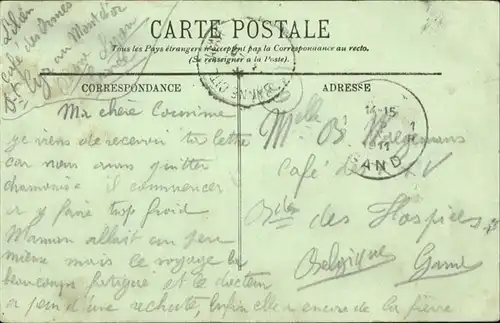 Lilán
École des Ormes
St Cyr au Mont d'or
près Lyon
CARTE POSTALE
Tous les Pays étrangers n'acceptent pas la Correspondance au recto.
(Se renseigner à la Poste).
CORRESPONDANCE
ADRESSE
Ma chère Cousine
je viens de recevoir ta lettre
car nous avons quitter
chamonix il commencer
a y faire trop froid
Maman allait un peu
mieux mais ce voyage l'a
beaucoup fatigué et le docteur
a peur d'une rechute, Enfin elle a encore de la fièvre
Melle
Café
Bd des Hospices
Belgique Gand
14-15
11
GAND